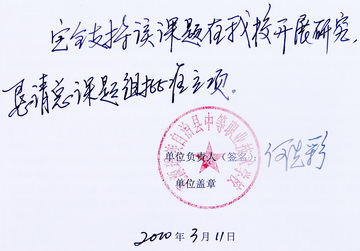 完全支持该课题在我校开展研究，
恳请总课题组批准立项。
单位负责人（签名）：
单位盖章
2020 年 3 月 11 日